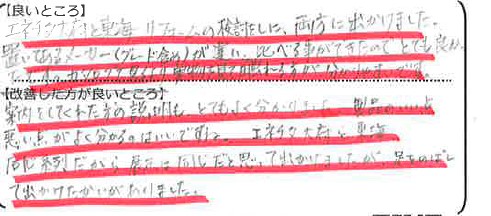 【良いところ】
エネドゥ大府と東海 リフォームの検討をしに、両方に出かけました。
置いてあるメーカー(グレード含め)が違い、比べる事ができたのでとても良か
【改善した方が良いところ】
案内をしてくれた方の説明も、とてもよく分かりました 製品のいい点
悪い点がよく分かるのはいいですね。 エネドゥ大府と東海
同じ系列だから展示は同じだと思って出かけましたが、足をのばし
て出かけたかいがありました。